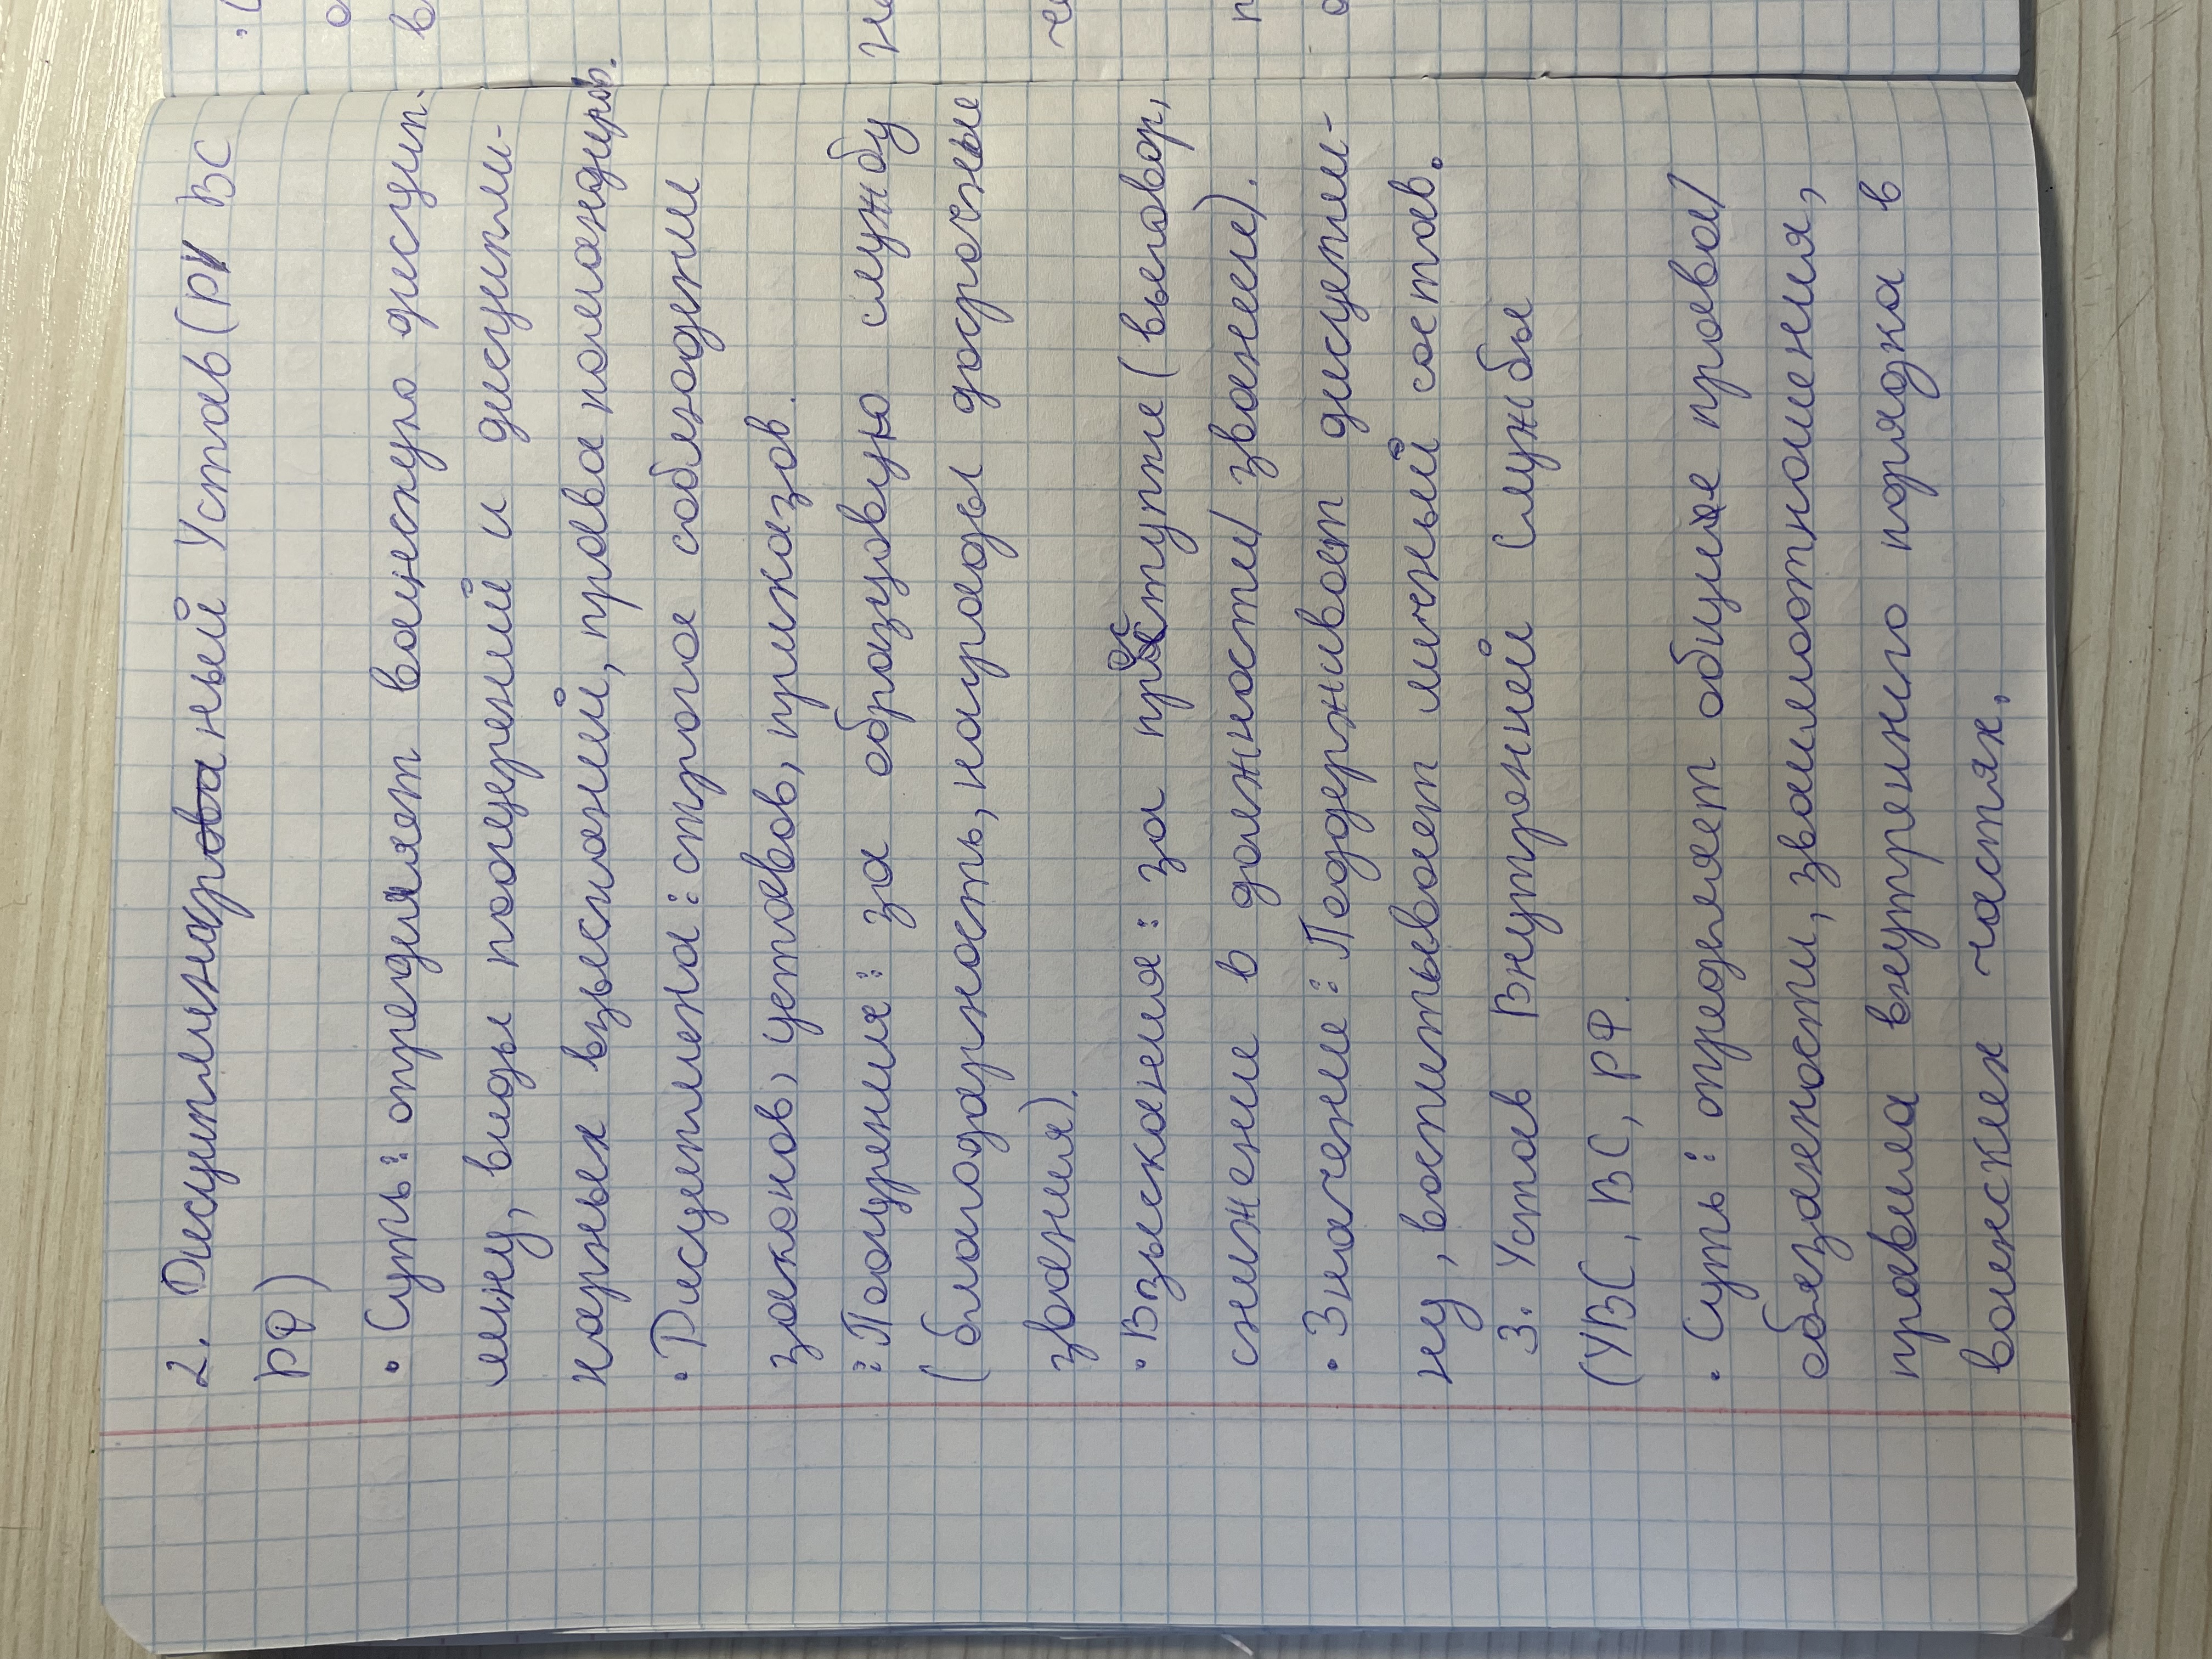 2. Дисциплинарный Устав (РУ ВС
РФ)
• Суть: определяет воинскую дисцип.
лину, виды поощрений и дисципли-
нарных взысканий, права командиров.
• Дисциплина: строгое соблюдении
законов, уставов, приказов.
: Поощрения: за образцовую службу
(благодарность, награды досрочные
звания).
• Взыскания: за проступки (выговор,
снижение в должности/ звании).
• Значение: Поддерживает дисципли-
ну, воспитывает личный состав.
3. Устав Внутренней Службы
(УВС, ВС, РФ.
• Суть: определяет общие права/
обязаности, взаимоотношения,
правила внутренего порядка в
воинских частях.